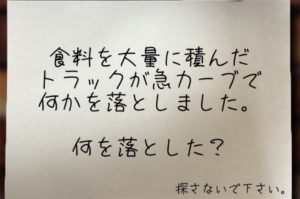 食料を大量に積んだ
トラックが急カーブで
何かを落としました。
何を落とした？
探さないで下さい。